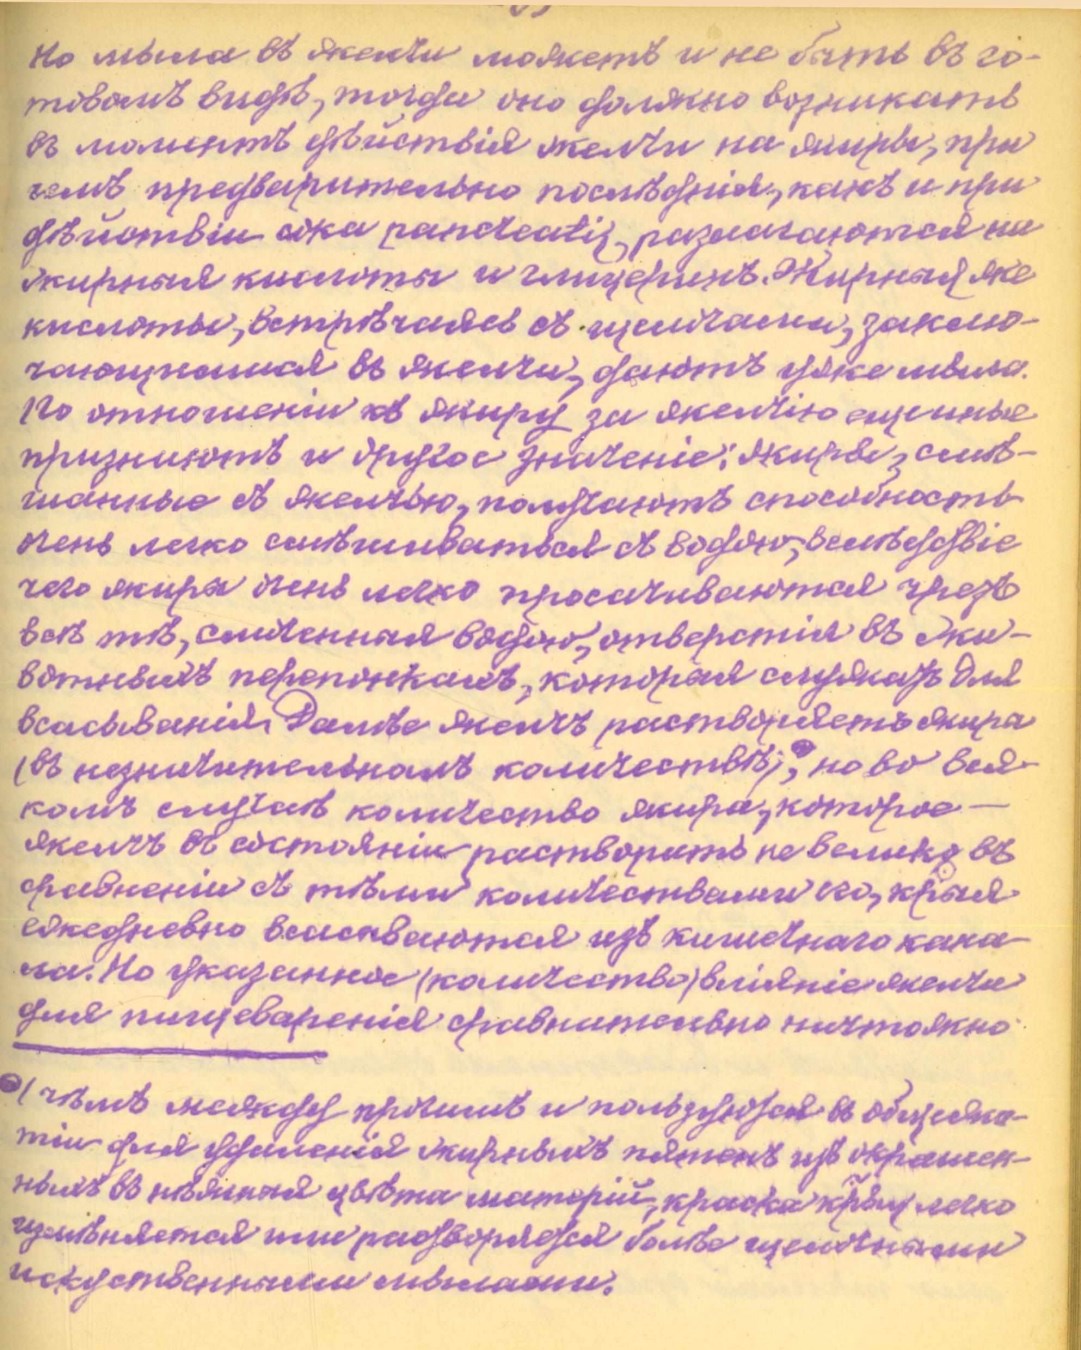 Но мыла въ желчи можетъ и не быть въ го-
товомъ видѣ, тогда оно должно возникать
въ моментъ дѣйствія желчи на жиры, при
чемъ предварительно послѣднія, какъ и при
дѣйствіи сока pancreatis, разлагаются на
жирныя кислоты и глицеринъ. Жирныя же
кислоты, встрѣчаясь съ щелочами, заклю-
чающимися въ желчи, даютъ уже мыла.
По отношенію къ жиру за желчію ученые
признаютъ и другое значеніе: жиры, смѣ-
шанные съ желчью, получаютъ способность
очень легко смѣшиваться съ водою, вслѣдствіе
чего жиры очень легко просачиваются чрезъ
всѣ тѣ, смоченныя водою, отверстія въ жи-
вотныхъ перепонкахъ, которыя служатъ для
всасыванія. Далѣе желчь растворяетъ жира
(въ незначительномъ количествѣ), но во вся-
комъ случаѣ количество жира, которое —
желчь въ состояніи растворить не велико въ
сравненіи съ тѣми количествами его, крыя
ежедневно всасываются изъ кишечнаго кана-
ла. Но указанное (количество) вліяніе желчи
для пищеваренія сравнительно ничтожно
(чѣмъ между прочимъ и пользуются въ общежи-
тіи для удаленія жирныхъ пятенъ изъ окрашен-
ныхъ въ нѣжныя цвѣта маторій, краска крыхъ легко
измѣняется или растворяется болѣе щелочными
искуственными мылами.